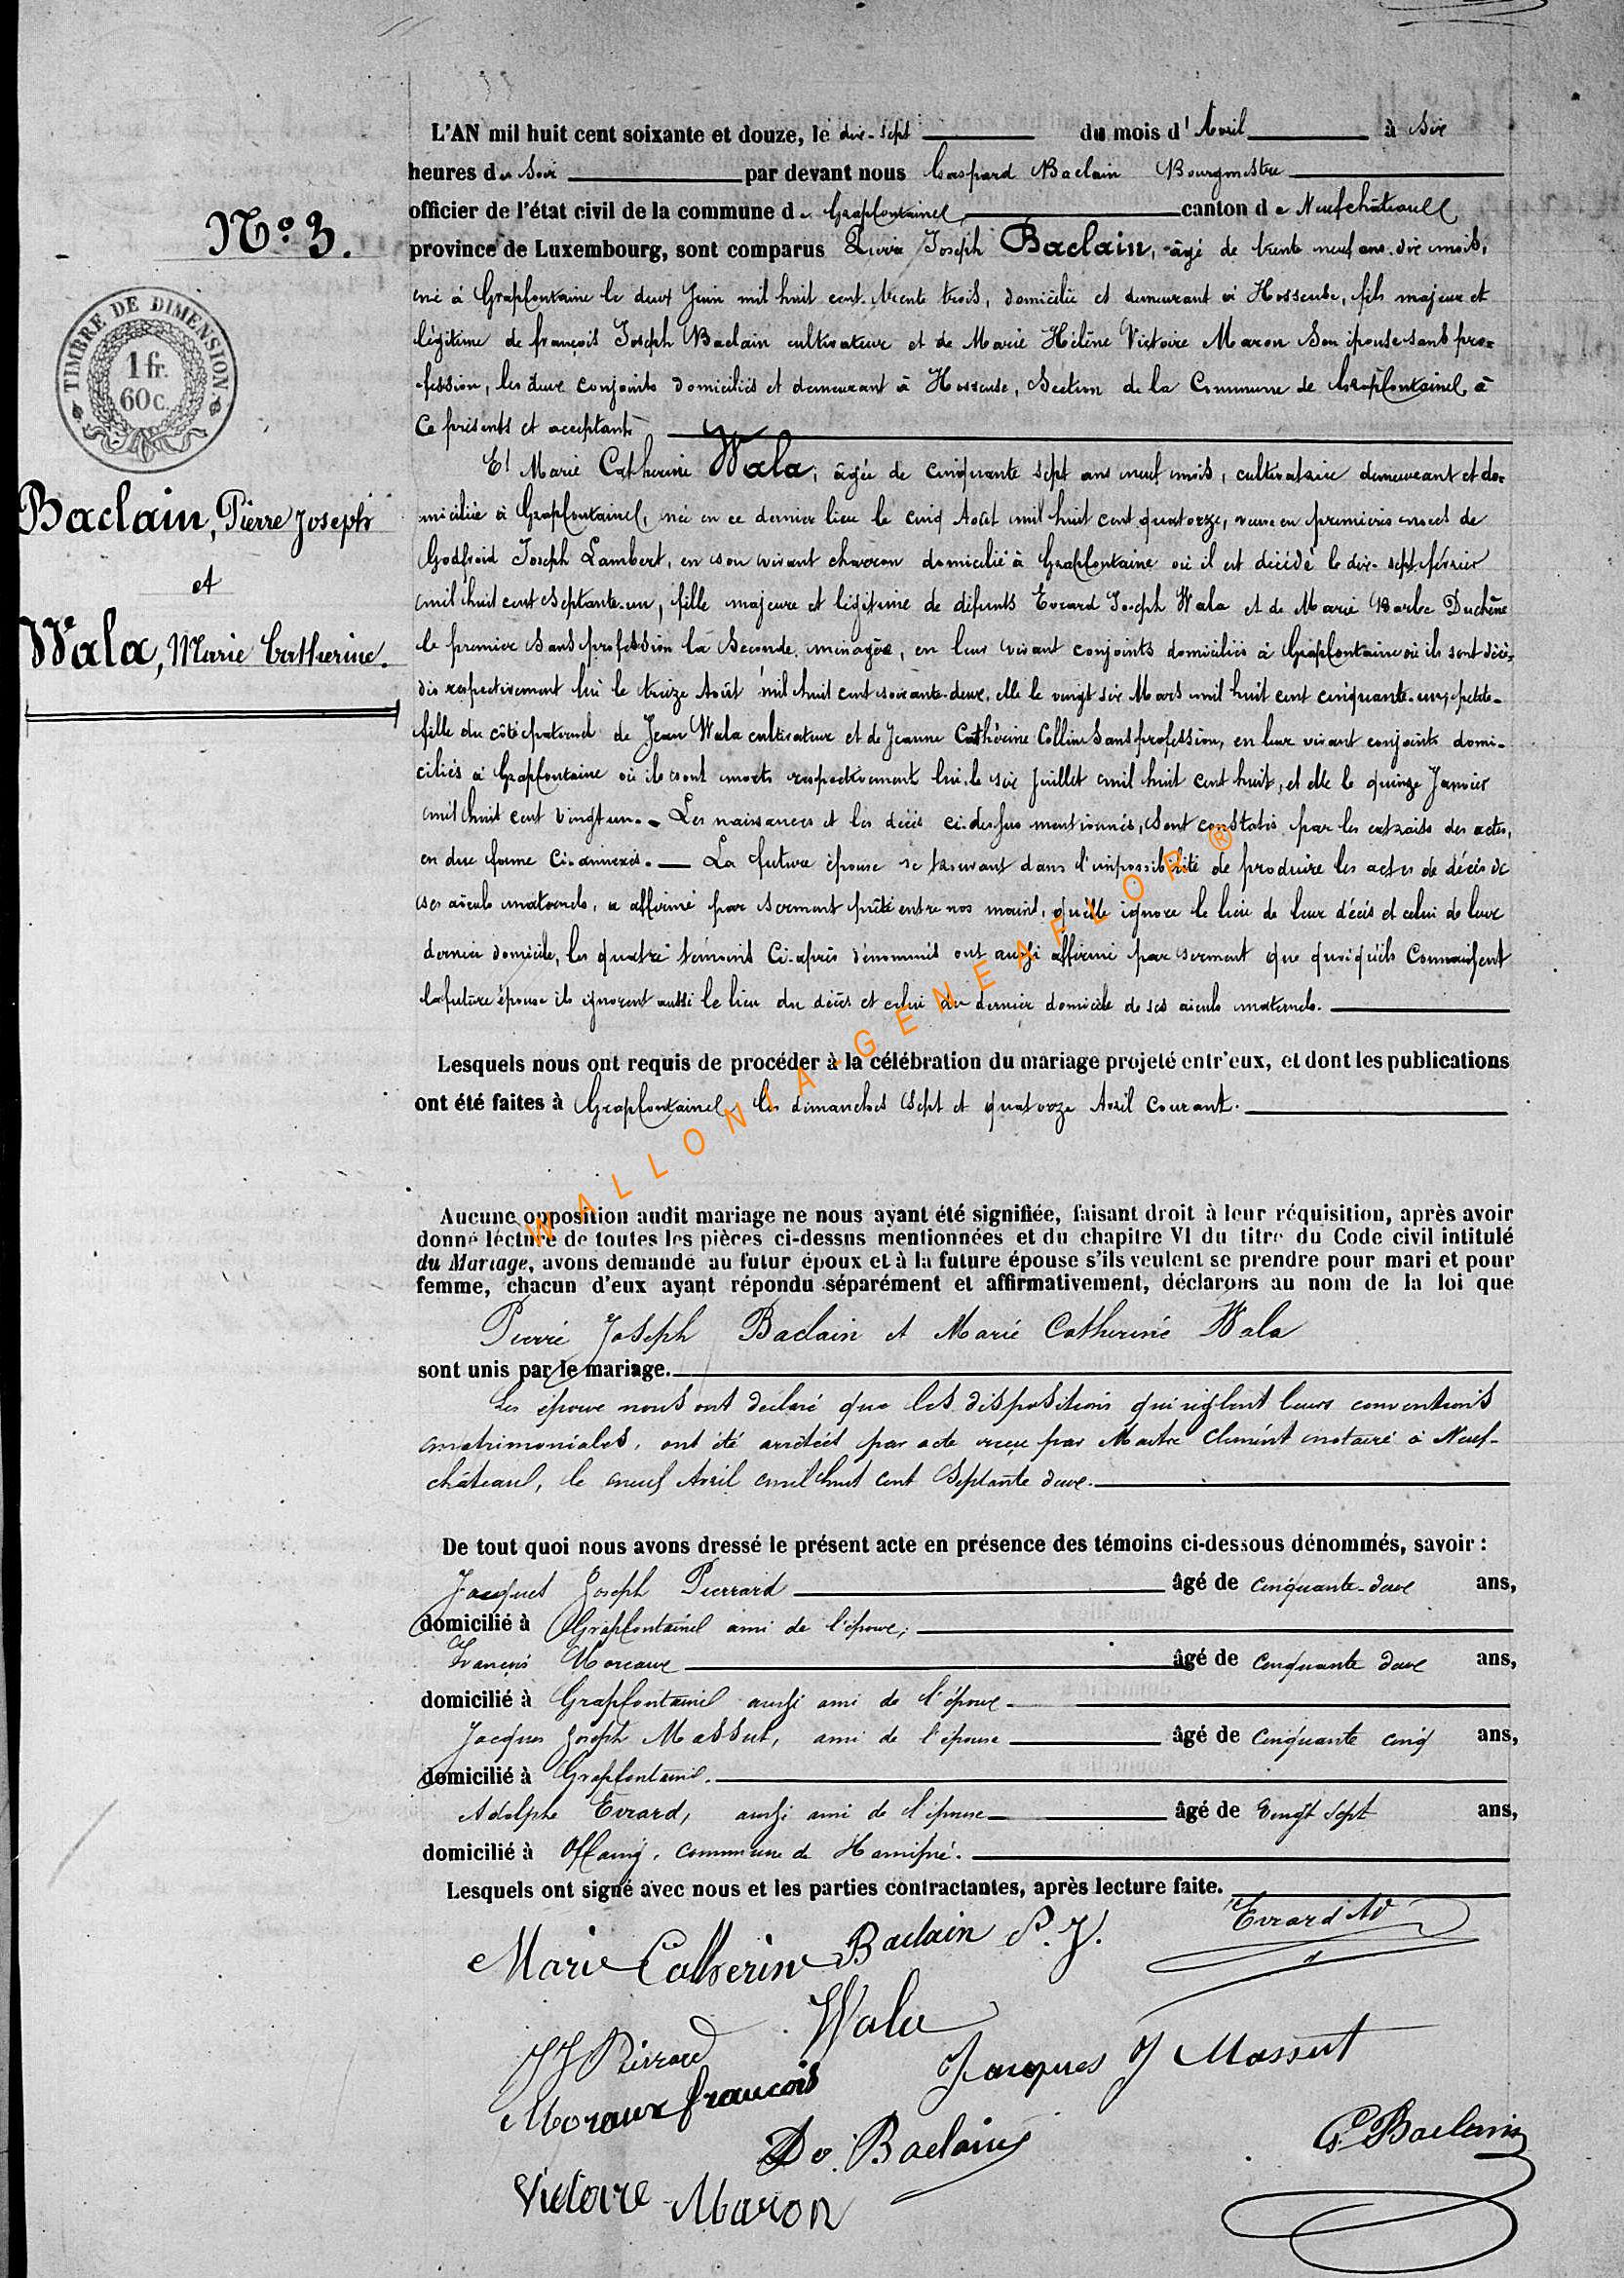 L'AN mil huit cent soixante et douze, le dix-sept du mois d'Avril à Six
heures du Soir par devant nous Gaspard Baclain Bourgmestre
officier de l'état civil de la commune de Grapfontaine, canton de Neufchâteau
province de Luxembourg, sont comparus Pierre Joseph Baclain, âgé de trente neuf ans dix mois,
né à Grapfontaine le deux Juin mil huit cent trente trois, domicilié et demeurant à Hosseuse, fils majeur et
légitime de françois Joseph Baclain cultivateur et de Marie Hélène Victoire Maron Son épouse sans pro=
fession, les deux conjoints domiciliés et demeurant à Hosseuse, Section de la Commune de Grapfontaine, à
Ce présents et acceptants
Et Marie Catherine Wala, âgée de cinquante sept ans neuf mois, cultivatrice demeurant et do=
miciliée à Grapfontaine, née en ce dernier lieu le cinq Août mil huit cent quatorze, veuve en premières noces de
Godfroid Joseph Lambert, en son vivant charron domicilié à Grapfontaine où il est décédé le dix-sept février
mil huit cent septante-un, fille majeure et légitime de défunts Evrard Joseph Wala et de Marie Barbe Duchêne
le premier Sans profession la Seconde ménagère, en leur vivant conjoints domiciliés à Grapfontaine où ils sont décé=
dés respectivement lui le treize Août mil huit cent soixante-deux, elle le vingt six Mars mil huit cent cinquante-un, petite-
fille du côté paternel de Jean Wala cultivateur et de Jeanne Cathérine Collin Sans profession, en leur vivant conjoints domi-
ciliés à Grapfontaine où ils sont morts respectivement lui, le six Juillet mil huit cent huit, et elle le quinze Janvier
mil huit cent vingt un. - Les naissances et les décès ci-dessus mentionnés, sont constatés par les extraits des actes,
en due forme Ci-annexés. — La future épouse se trouvant dans l'impossibilité de produire les actes de décès de
ses aïeuls maternels, a affirmé par serment prêté entre nos mains, qu'elle ignore le lieu de leur décès et celui de leur
dernier domicile, les quatre témoins Ci-après dénommés ont aussi affirmé par serment que quoiqu'ils Connaissent
la future épouse ils ignorent aussi le lieu du décès et celui du dernier domicile de ses aïeuls maternels.
Lesquels nous ont requis de procéder à la célébration du mariage projeté entr'eux, et dont les publications
ont été faites à Grapfontaine les dimanches Sept et quatorze Avril Courant.
Aucune opposition audit mariage ne nous ayant été signifiée, faisant droit à leur réquisition, après avoir
donné lecture de toutes les pièces ci-dessus mentionnées et du chapitre VI du titre du Code civil intitulé
du Mariage, avons demandé au futur époux et à la future épouse s'ils veulent se prendre pour mari et pour
femme, chacun d'eux ayant répondu séparément et affirmativement, déclarons au nom de la loi que
Pierre Joseph Baclain et Marie Catherine Wala
sont unis par le mariage.
Les époux nous ont déclaré que les dispositions qui règlent leurs conventions
matrimoniales, ont été arrêtées par acte reçu par Maître Clément notaire à Neuf-
château, le neuf Avril mil huit cent Septante deux.
De tout quoi nous avons dressé le présent acte en présence des témoins ci-dessous dénommés, savoir :
Jacques Joseph Pierrard âgé de cinquante-deux ans,
domicilié à Grapfontaine ami de l'époux,
François Moreaux âgé de cinquante deux ans,
domicilié à Grapfontaine aussi ami de l'époux
Jacques Joseph Massut, ami de l'épouse âgé de cinquante cinq ans,
domicilié à Grapfontaine.
Adolphe Evrard, aussi ami de l'épouse âgé de Vingt Sept ans,
domicilié à Offaing, commune de Hamipré.
Lesquels ont signé avec nous et les parties contractantes, après lecture faite.
Evrard Ad
Baclain P. J.
Marie Catherine
Wala
JJ Pierrard
Jacques J Massut
Moraux françois
Baclain
G. Baclain
Victoire Maron
N° 3.
TIMBRE DE DIMENSION
1 fr.
60 c.
Baclain, Pierre Joseph
et
Wala, Marie Catherine.
WALLONIA-GENEAFLOR®